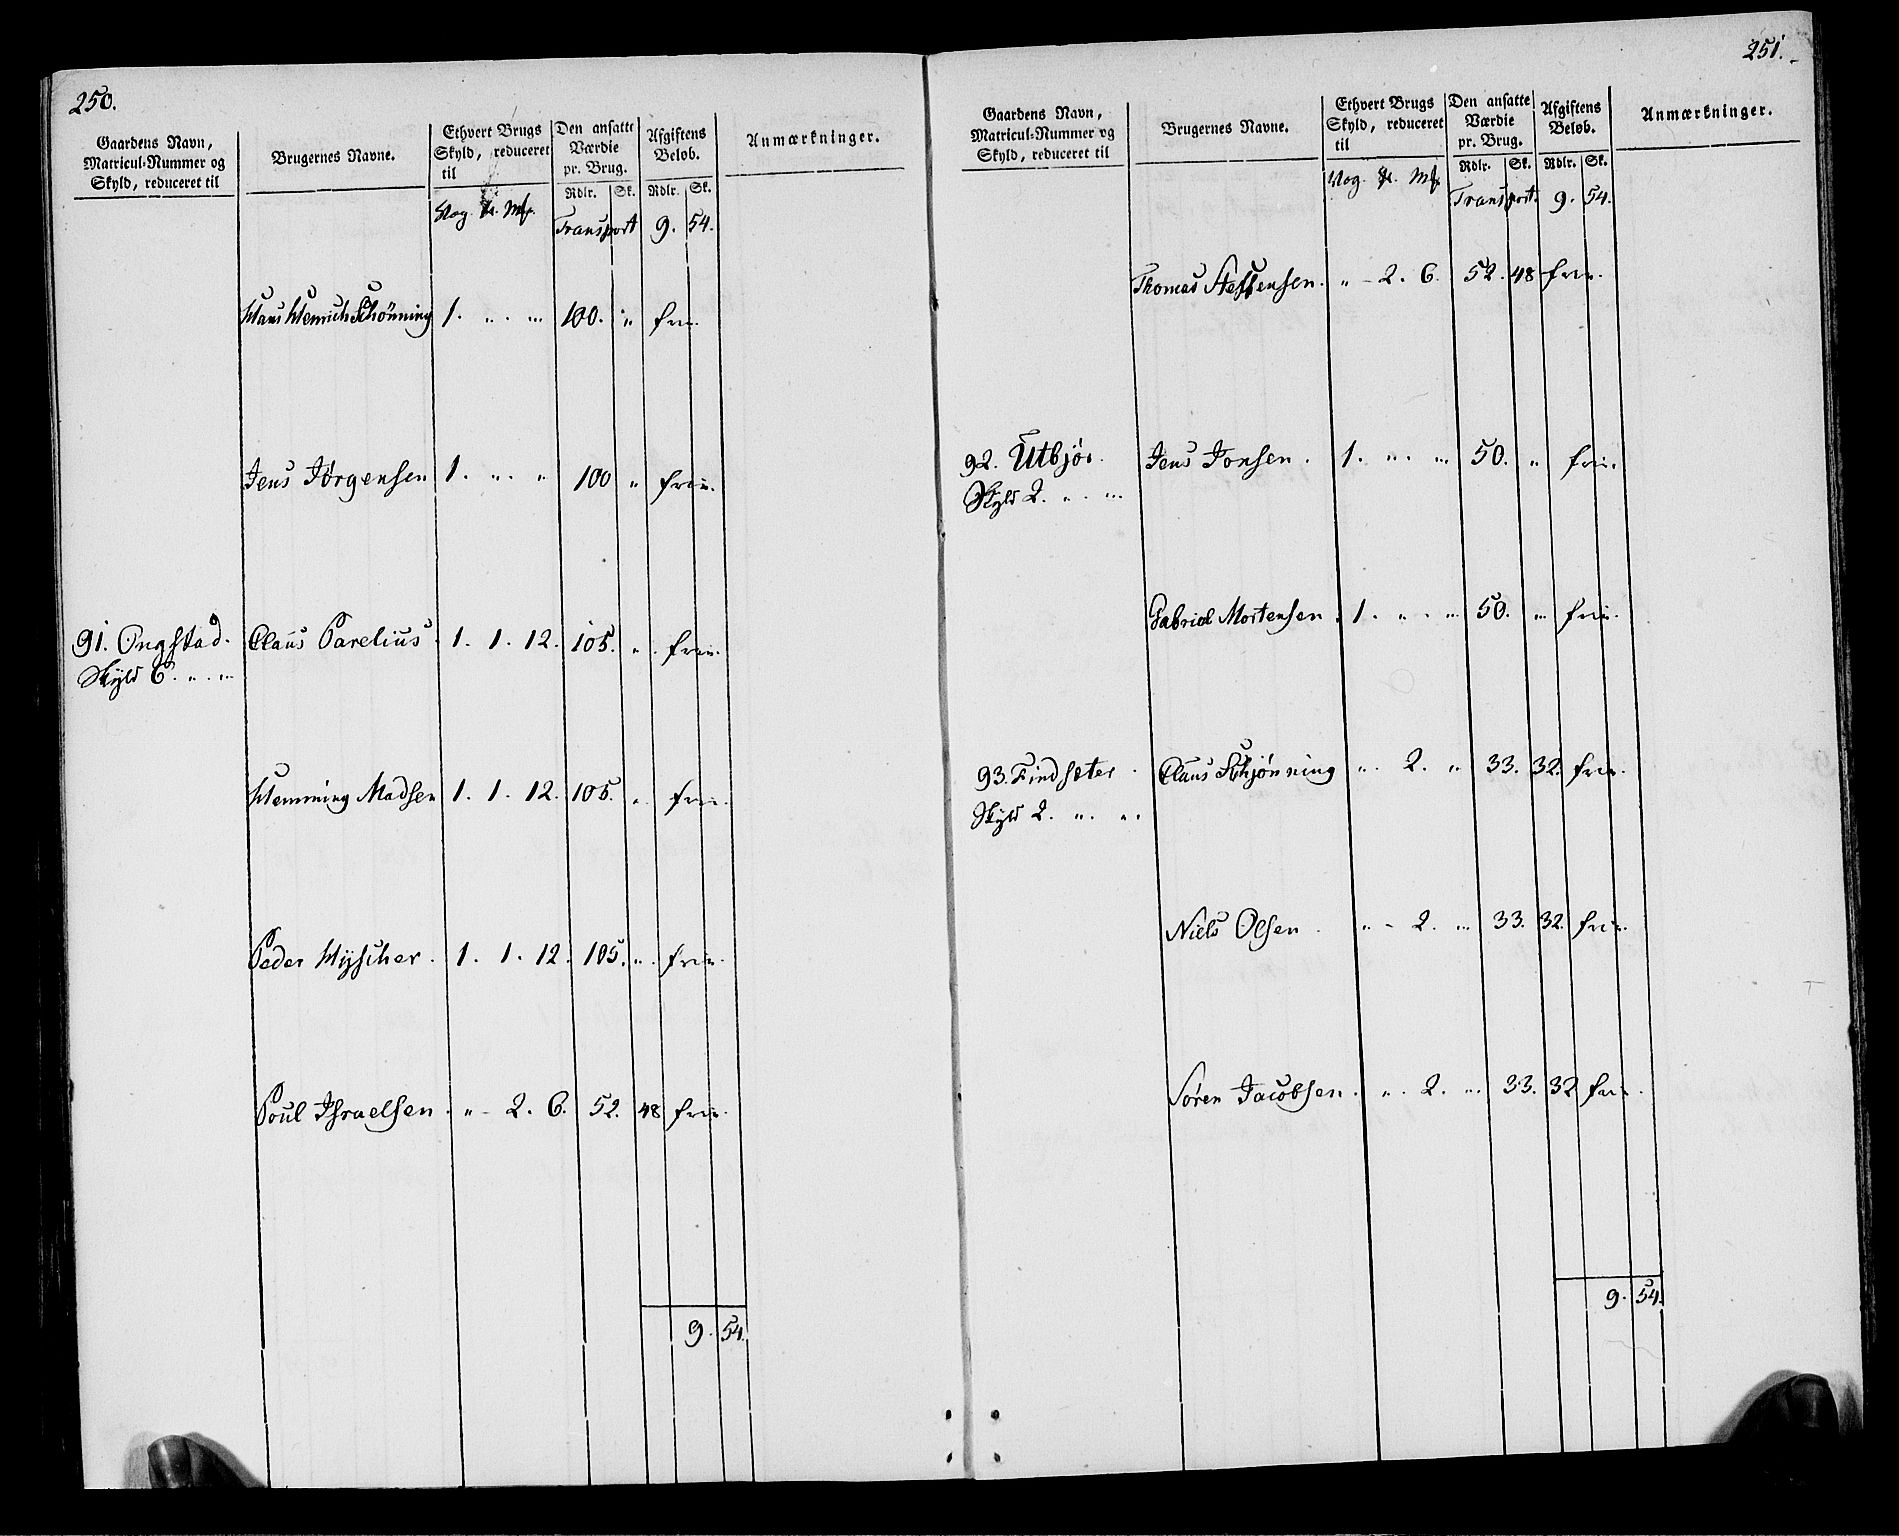 250.
Gaardens Navn, Matricul-Nummer og Skyld, reduceret til
Brugernes Navne.
Ethvert Brugs Skyld, reduceret til
Den ansatte Værdie pr. Brug.
Afgiftens Beløb.
Anmærkninger.
Rdlr. Sk. Rdlr. Sk.
Vog. Mk.
Transport 9. 54.
Hans Henrich Schønning 1. „ . „ 100. „ frie.
Jens Jørgensen 1. „ . „ 100 „ frie.
91. Ongstad. Claus Parelius. 1. 1. 12. 105. „ . frie.
Skyld 6. „ . „
Hemming Madsen 1. 1. 12. 105. „ . frie.
Peder Hyscher. 1. 1. 12. 105. „ . frie.
Poul Israelsen. „ - 2. 6. 52. 48 frie.
9. 54.
251.
Gaardens Navn, Matricul-Nummer og Skyld, reduceret til
Brugernes Navne.
Ethvert Brugs Skyld, reduceret til
Den ansatte Værdie pr. Brug.
Afgiftens Beløb.
Anmærkninger.
Rdlr. Sk. Rdlr. Sk.
Vog. Mk.
Transport. 9. 54.
Thomas Steffensen. „ - 2. 6. 52. 48 frie.
92. Utbjør. Jens Jonsen. 1. „ . „ 50. „ frie.
Skyld 2. „ . „
Gabriel Mortensen. 1. „ . „ 50. „ frie.
93. Findsæter. Claus Schjønning „ . 2. „ 33. 32. frie.
Skyld 2. „ . „
Niels Olsen. „ - 2. „ 33. 32. frie.
Søren Jacobsen. „ . 2. „ 33. 32 frie.
9. 54.